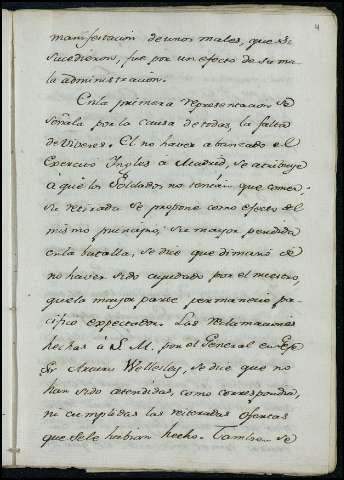 4
manifestacion de unos males, que si
sucedieron, fue por un efecto de su ma-
la administracion.
En la primera representacion se
señala por la causa de todas, la falta
de Viveres. El no haver abanzado el
Exercito Ingles a Madrid, se atribuye
à que los Soldados no tenian que comer;
su retirada se propone como efecto del
mismo principio; su mayor perdida
en la batalla, se dice que dimanó de
no haver sido ayudado por el nuestro,
que la mayor parte permanecio pa-
cifico expectador. Las reclamaciones
hechas à S. M. por el General en Gefe
Sir Arturo Wellesley, se dice que no
han sido atendidas, como correspondia,
ni cumplidas las reiteradas ofertas
que se le habian hecho. Tambien se